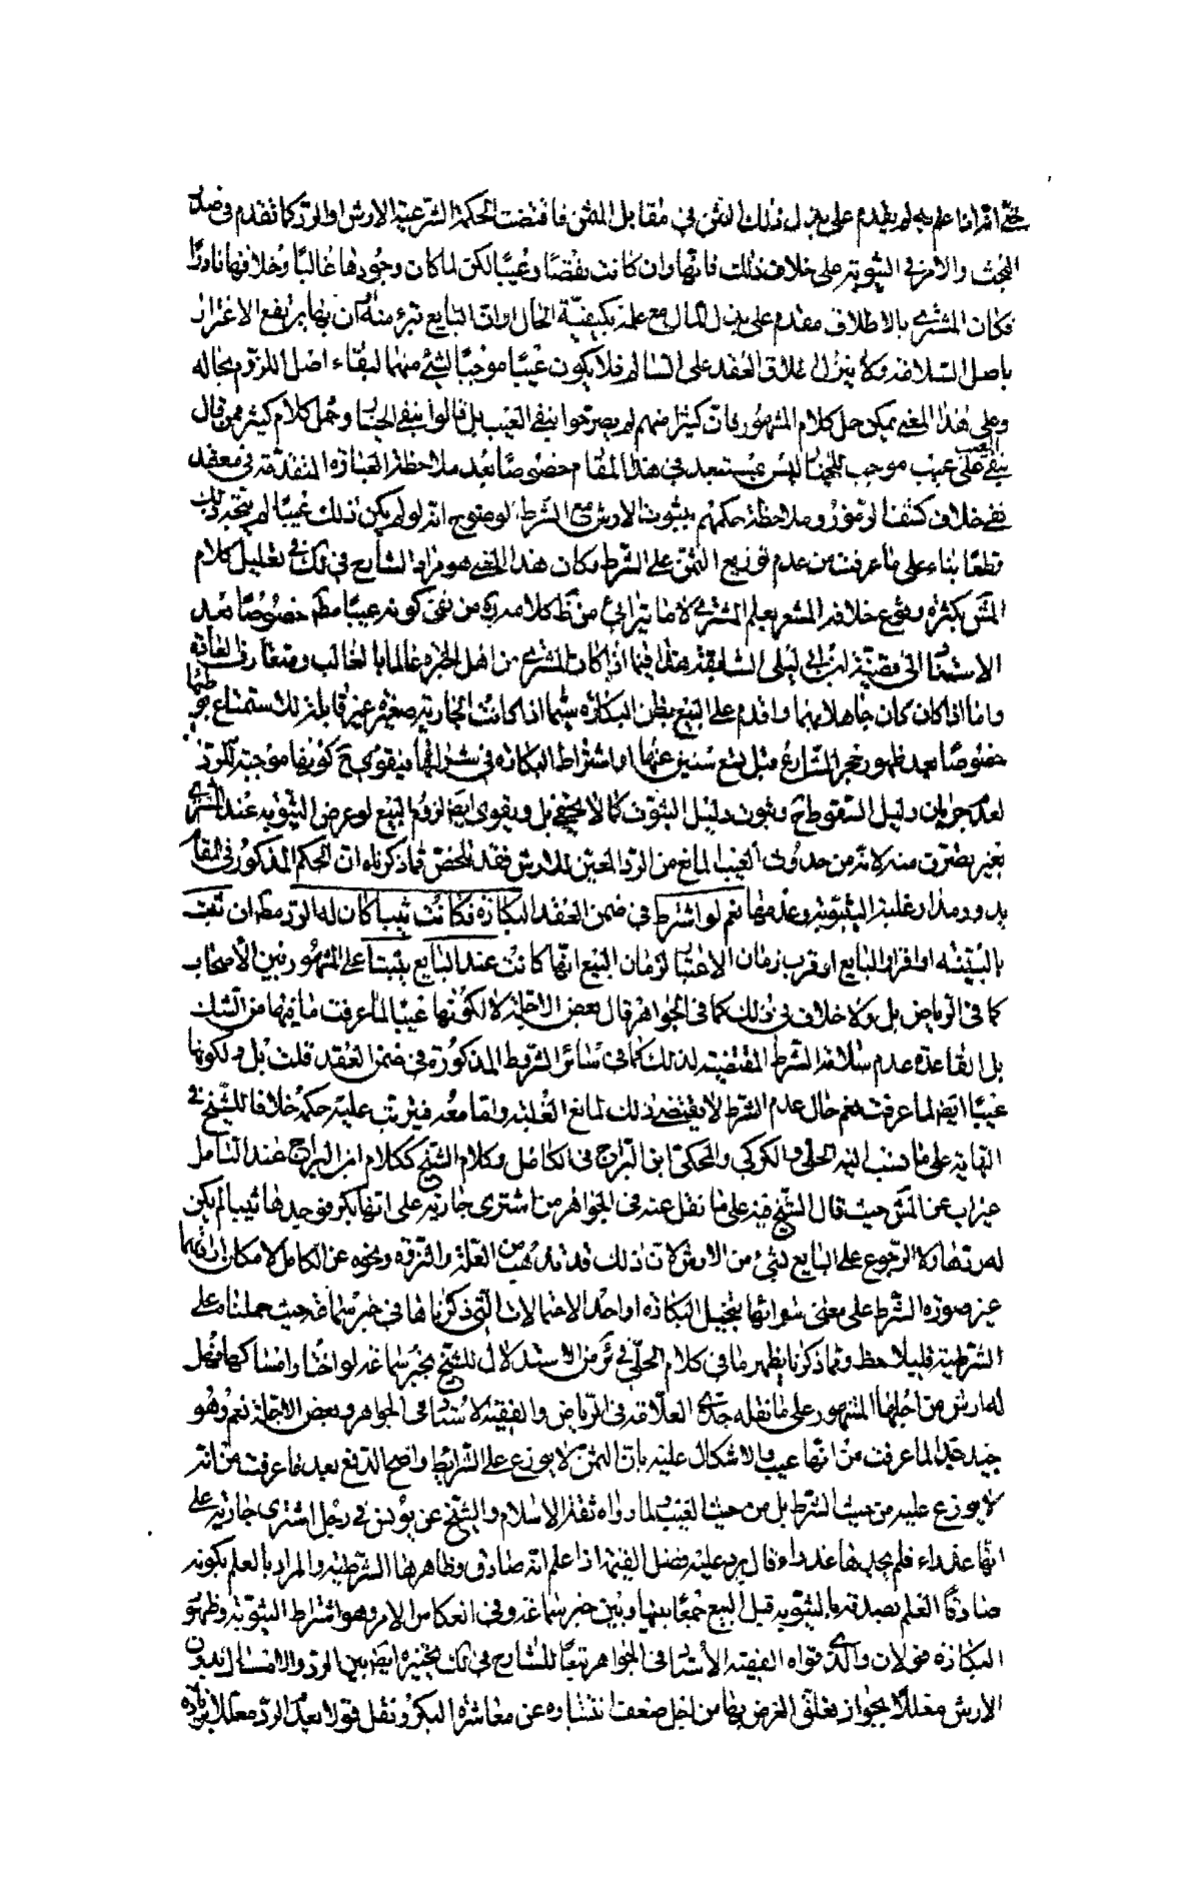 علم به لم يقدم على بذل ذلك الثمن في مقابل المثمن فاقتضت الحكمة الشرعية الارش او الرد كما تقدم في صدر
المبحث والامر في الثيوبة على خلاف ذلك فانها وان كانت نقصا وعيبا لكن لما كان وجودها غالبا وخلافها نادرا
فكان المشتري بالاطلاق مقدم على بذل المال مع علمه بكيفية الحال وان البايع تبرء منه ان بها يرتفع الاغترار
باصل السلامة ولا ينزل اطلاق العقد على السالم فلا يكون عيبا موجبا لشئ منهما لبقاء اصل اللزوم بحاله
وعلى هذا المعنى يمكن حمل كلام المشهور فان كثيرا منهم لم يصرحوا بنفي العيب بل قالوا بنفي الخيار وحمل كلام كثير ممن قال
على عيب موجب للخيار ليس ببعيد في هذا المقام خصوصا بعد ملاحظة العبارة المتقدمة في معقد
نفي خلاف كشف الرموز وملاحظة حكمهم بثبوت الارش مع الشرط لوضوح انه لو لم يكن ذلك عيبا لم يتجه ذلك
قطعا بناء على ما عرفت من عدم توزيع الثمن على الشرط وكان هذا المعنى هو مراد الشارح في لك في تعليل كلام
المتن بكثرة وقوع خلافه المشعر بعلم المشتري لا ما يترائى من ظ كلامه من نفي كونه عيبا مط خصوصا بعد
الاستناد الى قضية ابن ابي ليلى السابقة هذا فيما اذا كان المشتري من اهل الخبرة عالما بالغالب ومتعارف العادة
واما اذا كان كان جاهلا بهما واقدم على البيع بظن البكارة سيما اذا كانت الجارية صغيرة غير قابلة للاستمتاع
خصوصا بعد ظهور حجر الشارع قبل تسع سنين عنها او اشتراط البكارة في شرائها فيقوى ح كونها موجبة للرد
لعدم جريان دليل السقوط ح وثبوت دليل الثبوت كما لا يخفى بل ويقوى ايض لزوم البيع لو عرض الثيوبة عند المشتري
بغير تصرف منه لانه من حدوث العيب المانع من الرد المعين للارش فقد تلخص مما ذكرناه ان الحكم المذكور في المقام
يدور مدار غلبة الثيبوبة وعدمها نعم لو اشترط في ضمن العقد البكارة فكانت ثيبا كان له الرد مط ان ثبت
بالبينة او اقرار البايع او قرب زمان الاختبار لزمان البيع انها كانت عند البايع ثيبا على المشهور بين الاصحاب
كما في الرياض بل ولا خلاف في ذلك كما في الجواهر قال بعض الاجلة لا لكونها عيبا لما عرفت ما فيها من الشك
بل لقاعدة عدم سلامة الشرط المقتضية لذلك كما في سائر الشروط المذكورة في ضمن العقد قلت بل ولكونها
عيبا ايض لما عرفت نعم حال عدم الشرط لا يقتضى ذلك لمانع الغلبة واما معه فيترتب عليه حكمه خلافا للشيخ في
النهاية على ما نسب اليه الحلي والكركي والمحكي ابن البراج في الكامل وكلام الشيخ ككلام ابن البراج عند التامل
غير اب عن المتن حيث قال الشيخ فيه على ما نقل عنه في الجواهر من اشترى جارية على انها بكر فوجدها ثيبا لم يكن
له ردها ولا الرجوع على البايع بشئ من الارش لان ذلك قد تذهب من العلة والنزوة ونحوه عن الكامل لامكان
غير صورة الشرط على معنى شرائها بتخيل البكارة او احد الاحتمالات التي ذكرناها في خبر سماعة حيث حملناه على
الشرطية فليلاحظ ومما ذكرنا يظهر ما في كلام الحلي في ئر من الاستدلال للشيخ بخبر سماعة لو اختار امساكها فهل
له ارش من اجلها المشهور على ما نقله جدي العلامة في الرياض والفقيه الاستاد في الجواهر وبعض الاجلة نعم وهو
جيد جدا لما عرفت من انها عيب والاشكال عليه بان الثمن لا يوزع على الشرائط واضح الدفع بعد ما عرفت من انه
لا يوزع عليه من حيث الشرط بل من حيث العيب لما رواه ثقة الاسلام والشيخ عن يونس في رجل اشترى جارية على
انها عذراء فلم يجدها عذراء قال يرد عليه فضل القيمة اذا علم انه صادق وظاهرها الشرطية والمراد بالعلم بكونه
صادقا العلم بصدقه بالثيوبة قبل البيع جمعا بينها وبين خبر سماعة وفي انعكاس الامر وهو اشتراط الثيوبة وظهور
البكارة قولان والذي قواه الفقيه الاستاد في الجواهر تبعا للشارح في لك تخييره ايض بين الرد والامساك بدون
الارش معللا بجواز تعلق الغرض بها من اجل ضعف انتشاره عن مباشرة البكر ونقل قولا بعدم الرد معللا بزيادة